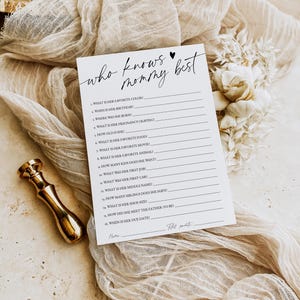 who knows
mommy best
1. WHAT IS HER FAVORITE COLOR?
2. WHEN IS HER BIRTHDAY?
3. WHERE WAS SHE BORN?
5. HOW OLD IS SHE?
6. WHAT IS HER FAVORITE FOOD?
7. WHAT IS HER FAVORITE MOVIE?
8. WHAT IS HER FAVORITE ANIMAL?
9. HOW MANY KIDS DOES SHE WANT?
10. WHAT WAS HER FIRST JOB?
11. WHAT WAS HER FIRST CAR?
12. WHAT IS HER MIDDLE NAME?
13. HOW MANY SIBLINGS DOES SHE HAVE?
14. WHAT IS HER SHOE SIZE?
15. HOW DID SHE MEET THE FATHER-TO-BE?
16. WHEN IS HER DUE DATE?